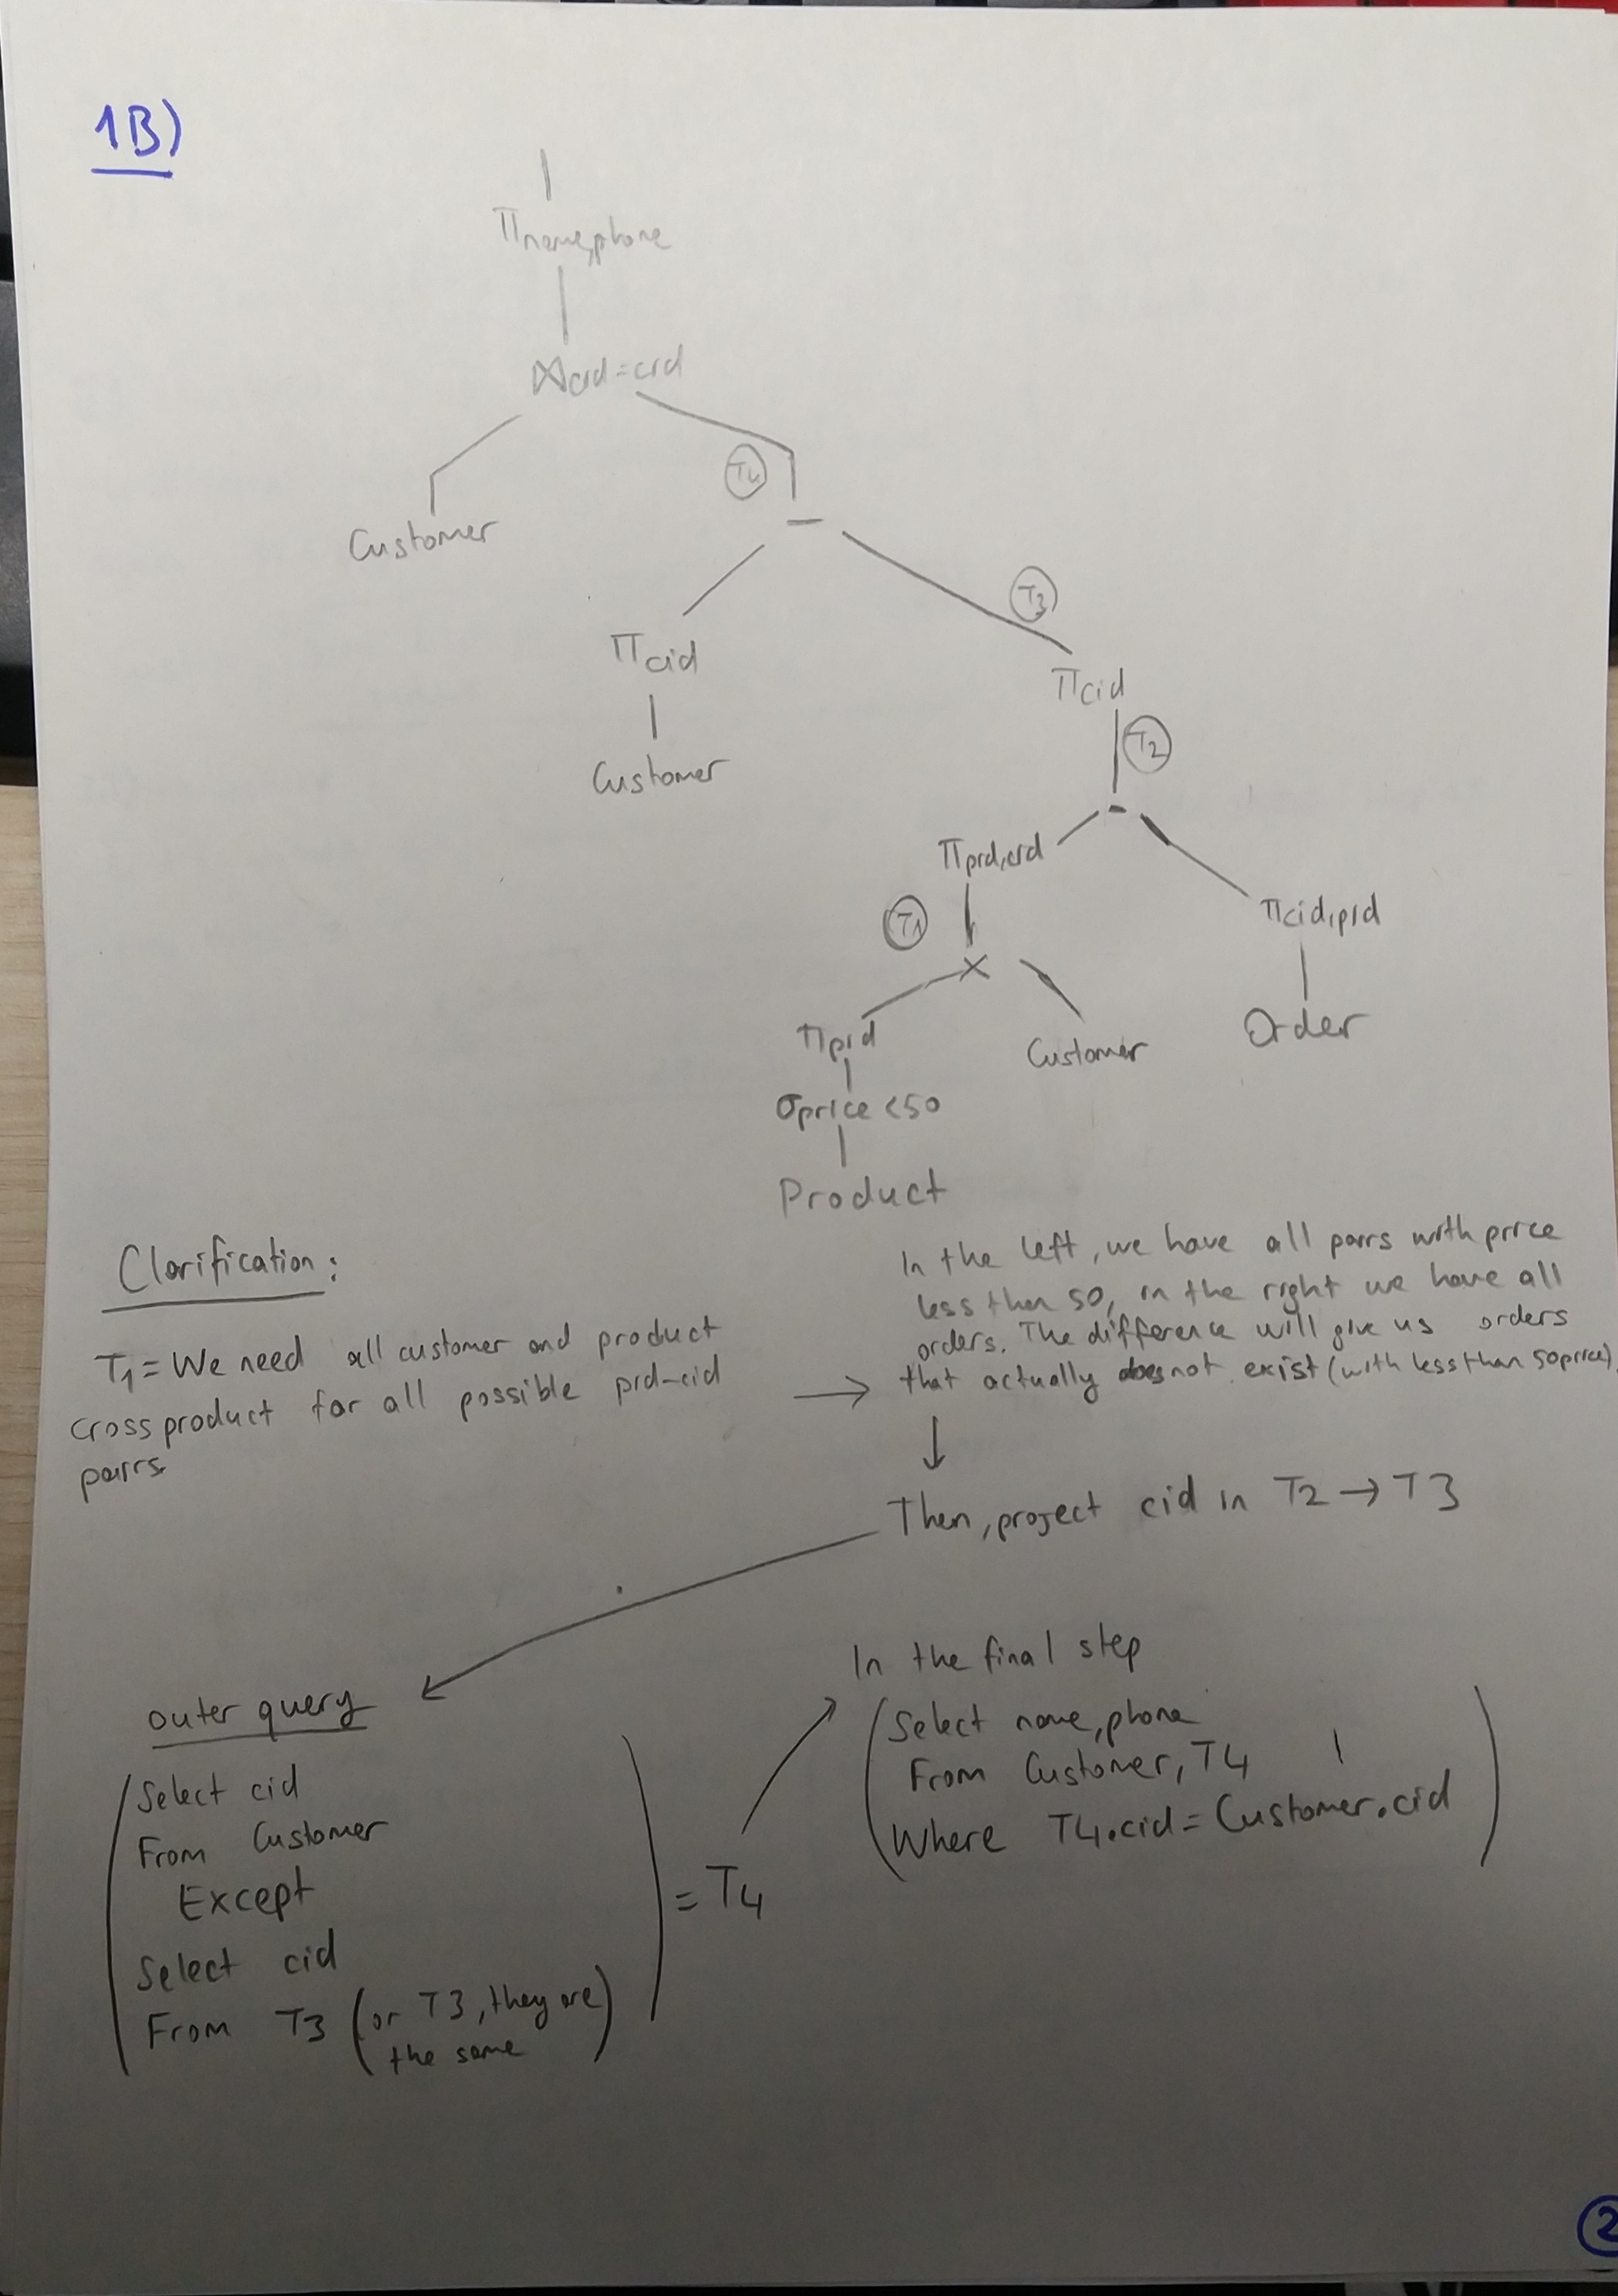 1B)
πname,phone
⋈cid=cid
T4
Customer
−
T3
πcid
πcid
T2
Customer
-
πpid,cid
πcid,pid
T1
×
πpid
Customer
Order
σprice<50
Product
Clarification:
T1 = We need all customer and product
cross product for all possible pid-cid
pairs
→
In the left, we have all pairs with price
less than 50, in the right we have all
orders. The difference will give us orders
that actually does not exist (with less than 50 price).
↓
Then, project cid in T2 → T3
outer query
(Select cid
From Customer
Except
Select cid
From T3 (or T3, they are
the same)
) = T4
In the final step
(Select name, phone
From Customer, T4
Where T4.cid = Customer.cid)
2